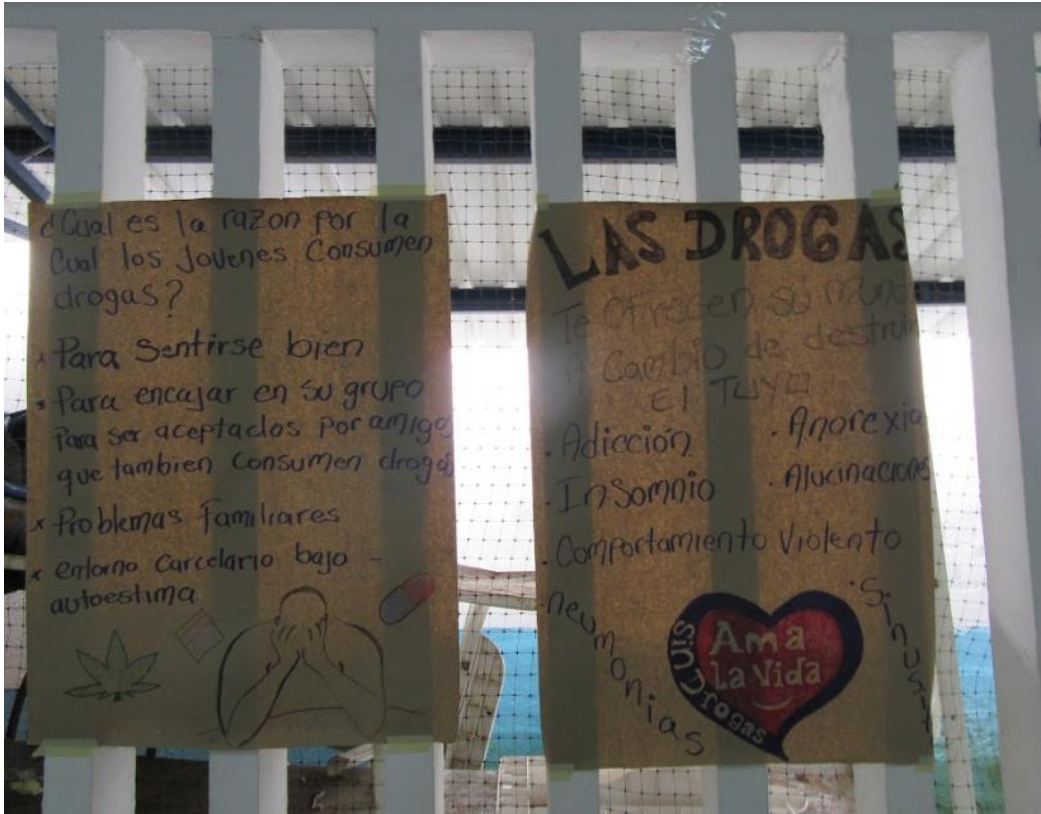 ¿Cual es la razon por la
Cual los Jovenes Consumen
drogas?
* Para Sentirse bien
* Para encajar en su grupo
Para ser aceptados por amigos
que tambien consumen drogas
* Problemas familiares
* entorno Carcelario bajo -
autoestima
LAS DROGAS
Te Ofrecen su
A Cambio de destruir
El TUYO
. Adicción
. Anorexia
. Insomnio
. Alucinaciones
. Comportamiento Violento
. neumonias
Sin Drogas
Ama
La Vida